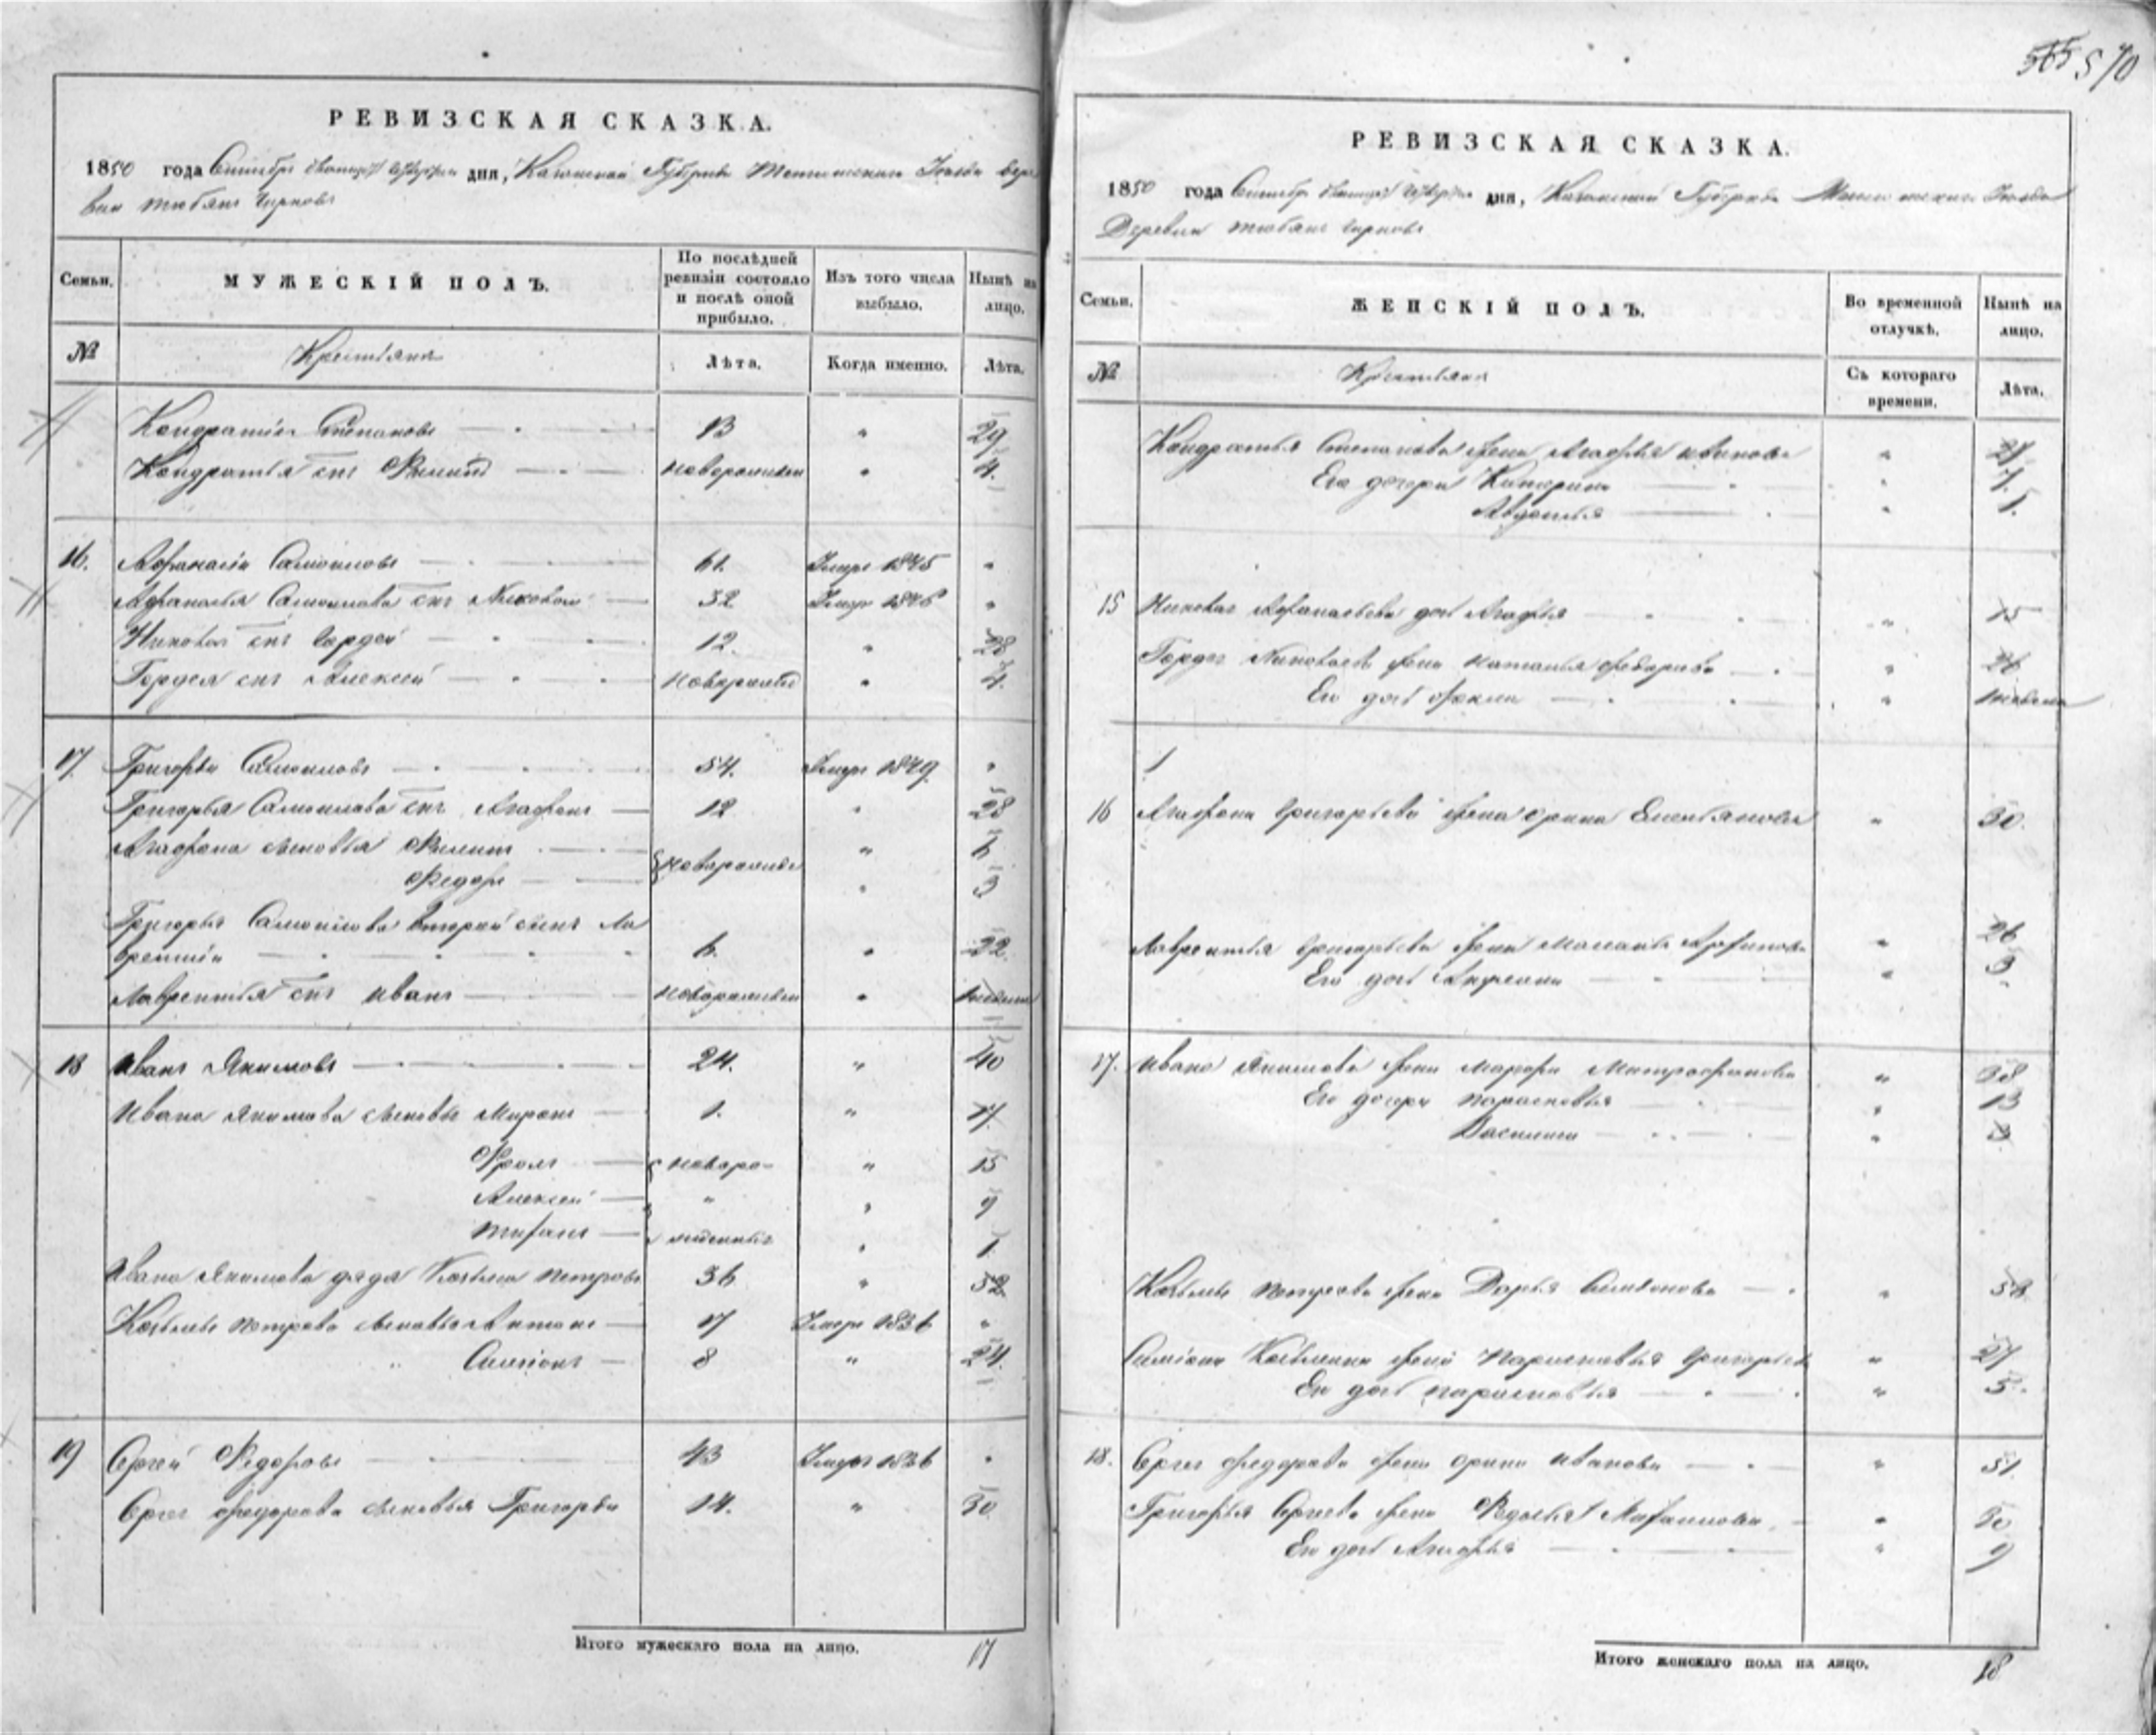 565 570
РЕВИЗСКАЯ СКАЗКА.
1850 года Сентября дня, Казанской Губернии Тетюшскаго Уезда Дере
вни Тюбяк Чирков
Семьи. МУЖЕСКІЙ ПОЛЪ. По послѣдней ревизіи состояло и послѣ оной прибыло. Изъ того числа выбыло. Нынѣ на лицо.
№ Крестьяне Лѣта. Когда именно. Лѣта.
Кондратій Степановъ 13 " 29
Кондратья снъ Филипъ новорожден " 4.
16. Афанасій Самойловъ 61. Умеръ 1845 "
Афанасья Самойлова снъ Николай 32 Умеръ 1846 "
Николая снъ Гордей 12. " 28
Гордея снъ Алексей новорожд " 4.
17. Григорей Самойловъ 54. Умеръ 1849. "
Григорья Самойлова снъ Агафонъ 12 " 28
Агафона сыновья Филипъ новорожден " 6
Федоръ " 3
Григорья Самойлова второй сынъ Ла
врентій 6. " 22.
Лаврентья снъ Иванъ новорожден "
18 Иванъ Якимовъ 24. " 40
Ивана Якимова сыновья Миронъ 1. " 17.
Фролъ новоро- " 15
Алексей " " 9
жденные " 1
Ивана Якимова дядя Козьма Петровъ 36 " 52
Козьмы Петрова сыновья Антонъ 17 Умеръ 1836 "
" Симіонъ 8 " 24.
19 Сергей Федоровъ 43 Умеръ 1836 "
Сергея Федорова сыновья Григорей 14. " 30
Итого мужескаго пола на лицо. 17
РЕВИЗСКАЯ СКАЗКА.
1850 года Сентября дня, Казанской Губернии Тетюшскаго Уезда
Деревни Тюбяк Чирков
Семьи. ЖЕНСКІЙ ПОЛЪ. Во временной отлучкѣ. Нынѣ на лицо.
№ Крестьяне Съ котораго времени. Лѣта.
Кондратья Степанова жена Агафья Иванова " 27
Его дочери Катерина " 7.
Авдотья " 1.
15 Николая Афанасьева дочь Агафья " 15
Гордея Николаева жена Наталья Федорова " 26
Его дочь Фекла "
16 Агафона Григорьева жена Орина Емельянова " 30.
Лаврентья Григорьева жена " 26
Его дочь " 3
17. Ивана Якимова жена Марфа Митрофанова " 38
Его дочери Парасковья " 13
Василиса " 3
Козьмы Петрова жена Дарья Симионова " 58
Симіона Козьмина жена Парасковья Григорьев " 27
Его дочь Парасковья " 5.
18. Сергея Федорова жена Орина Иванова " 51.
Григорья Сергеева жена Федосья " 30
Его дочь Агафья " 9
Итого женскаго пола на лицо. 18